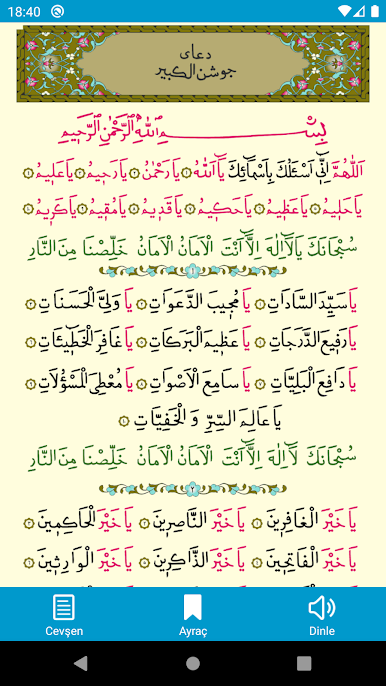 18:40
دعاى
جوشن الكبير
بِسْــــــمِ اللّٰهِ الرَّحْمٰنِ الرَّحِيمِ
اَللّٰهُمَّ اِنِّى اَسْئَلُكَ بِاَسْمَائِكَ يَا اَللّٰهُ يَا رَحْمٰنُ يَا رَحِيمُ يَا عَلِيمُ
يَا حَلِيمُ يَا عَظِيمُ يَا حَكِيمُ يَا قَدِيمُ يَا مُقِيمُ يَا كَرِيمُ
سُبْحَانَكَ يَا لَٓا اِلٰهَ اِلَّٓا اَنْتَ الْاَمَانُ الْاَمَانُ خَلِّصْنَا مِنَ النَّارِ
١
يَا سَيِّدَ السَّادَاتِ يَا مُجِيبَ الدَّعَوَاتِ يَا وَلِىَّ الْحَسَنَاتِ
يَا رَفِيعَ الدَّرَجَاتِ يَا عَظِيمَ الْبَرَكَاتِ يَا غَافِرَ الْخَطِيئَاتِ
يَا دَافِعَ الْبَلِيَّاتِ يَا سَامِعَ الْاَصْوَاتِ يَا مُعْطِىَ الْمَسْؤُلَاتِ
يَا عَالِمَ السِّرِّ وَ الْخَفِيَّاتِ
سُبْحَانَكَ يَا لَٓا اِلٰهَ اِلَّٓا اَنْتَ الْاَمَانُ الْاَمَانُ خَلِّصْنَا مِنَ النَّارِ
٢
يَا خَيْرَ الْغَافِرِينَ يَا خَيْرَ النَّاصِرِينَ يَا خَيْرَ الْحَاكِمِينَ
يَا خَيْرَ الْفَاتِحِينَ يَا خَيْرَ الذَّاكِرِينَ يَا خَيْرَ الْوَارِثِينَ
Cevşen
Ayraç
Dinle